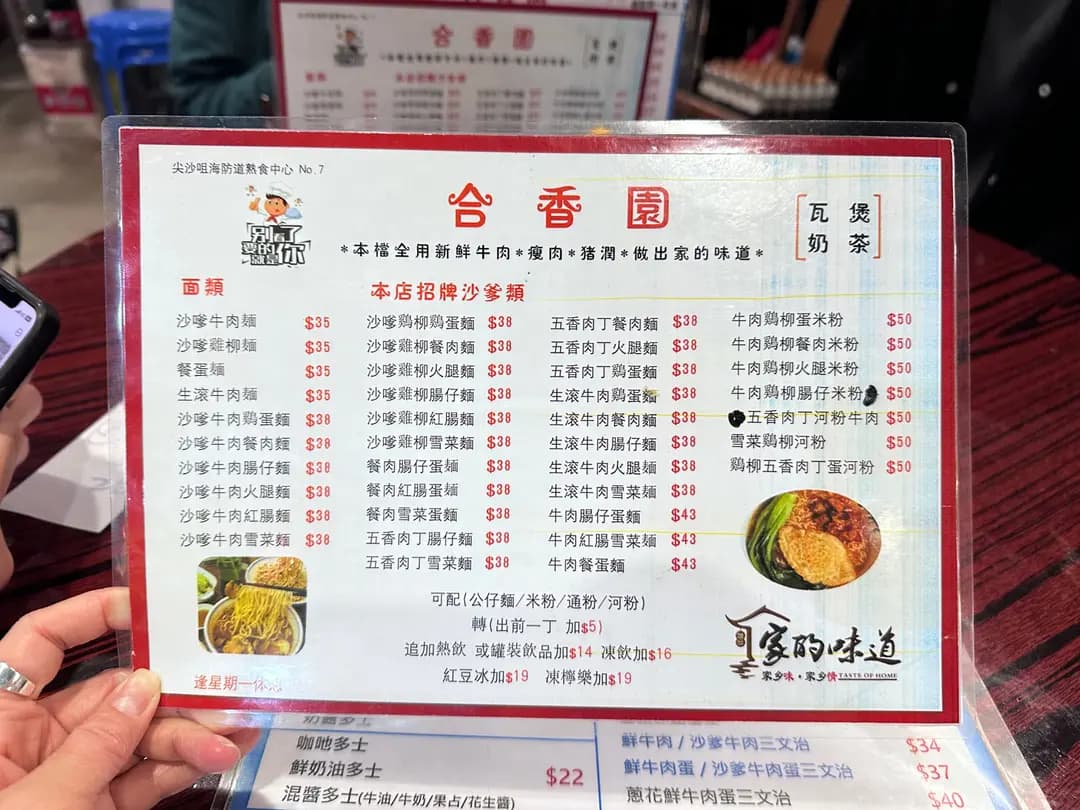 合香園
尖沙咀海防道熟食中心 No.7
合香園
瓦煲
奶茶
別看了
要的就是你
*本檔全用新鮮牛肉*瘦肉*猪潤*做出家的味道*
面類
沙嗲牛肉麵 $35
沙嗲雞柳麵 $35
餐蛋麵 $35
生滾牛肉麵 $35
沙嗲牛肉鷄蛋麵 $38
沙嗲牛肉餐肉麵 $38
沙嗲牛肉腸仔麵 $38
沙嗲牛肉火腿麵 $38
沙嗲牛肉紅腸麵 $38
沙嗲牛肉雪菜麵 $38
本店招牌沙爹類
沙嗲鷄柳鷄蛋麵 $38
沙嗲雞柳餐肉麵 $38
沙嗲雞柳火腿麵 $38
沙嗲雞柳腸仔麵 $38
沙嗲雞柳紅腸麵 $38
沙嗲雞柳雪菜麵 $38
餐肉腸仔蛋麵 $38
餐肉紅腸蛋麵 $38
餐肉雪菜蛋麵 $38
五香肉丁腸仔麵 $38
五香肉丁雪菜麵 $38
五香肉丁餐肉麵 $38
五香肉丁火腿麵 $38
五香肉丁鷄蛋麵 $38
生滾牛肉鷄蛋麵 $38
生滾牛肉餐肉麵 $38
生滾牛肉腸仔麵 $38
生滾牛肉火腿麵 $38
生滾牛肉雪菜麵 $38
牛肉腸仔蛋麵 $43
牛肉紅腸雪菜麵 $43
牛肉餐蛋麵 $43
牛肉鷄柳蛋米粉 $50
牛肉鷄柳餐肉米粉 $50
牛肉鷄柳火腿米粉 $50
牛肉鷄柳腸仔米粉 $50
五香肉丁河粉牛肉 $50
雪菜鷄柳河粉 $50
鷄柳五香肉丁蛋河粉 $50
可配(公仔麵/米粉/通粉/河粉)
轉(出前一丁 加$5)
追加熱飲 或罐裝飲品加$14 凍飲加$16
紅豆冰加$19 凍檸樂加$19
逢星期一休息
家的味道
家乡味·家乡情 TASTE OF HOME
奶醬多士
咖吔多士
鮮奶油多士 $22
混醬多士(牛油/牛奶/果占/花生醬)
鮮牛肉/沙爹牛肉三文治 $34
鮮牛肉蛋/沙爹牛肉蛋三文治 $37
蔥花鮮牛肉蛋三文治 $40